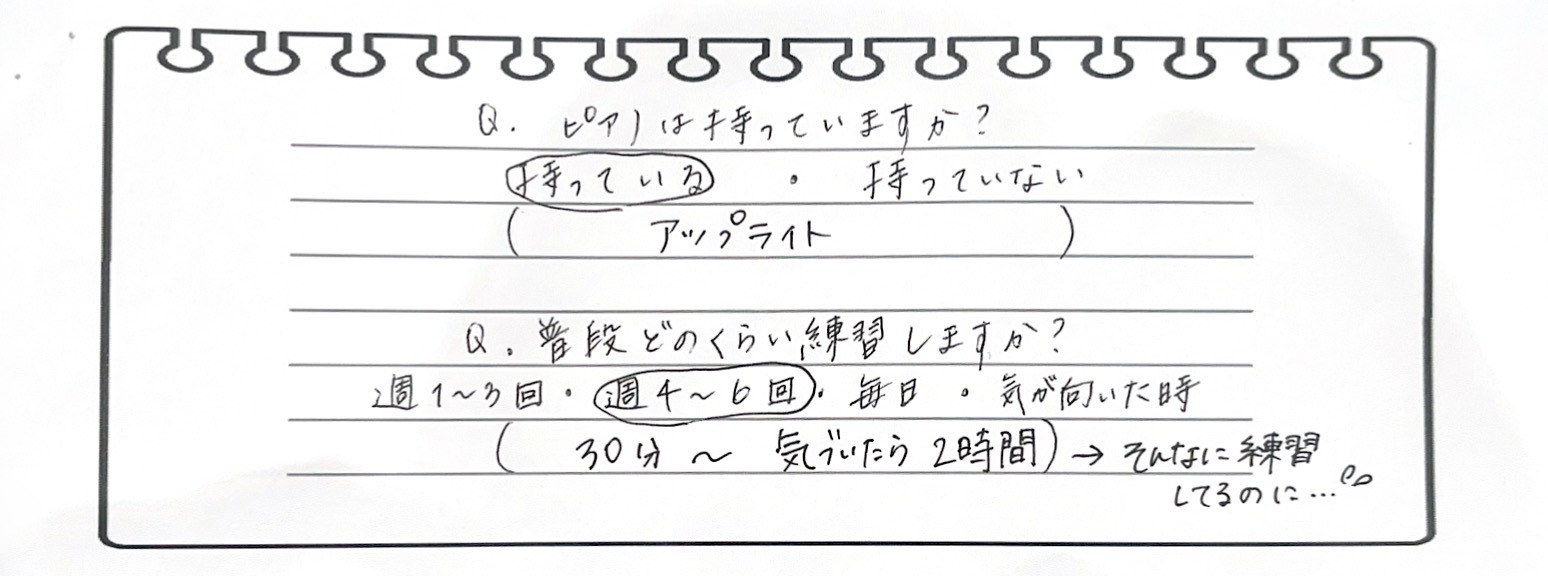 Q. ピアノは持っていますか?
持っている ・ 持っていない
( アップライト )
Q. 普段どのくらい練習しますか?
週1〜3回・週4〜6回・毎日・気が向いた時
( 30分 〜 気づいたら2時間)→そんなに練習
してるのに...